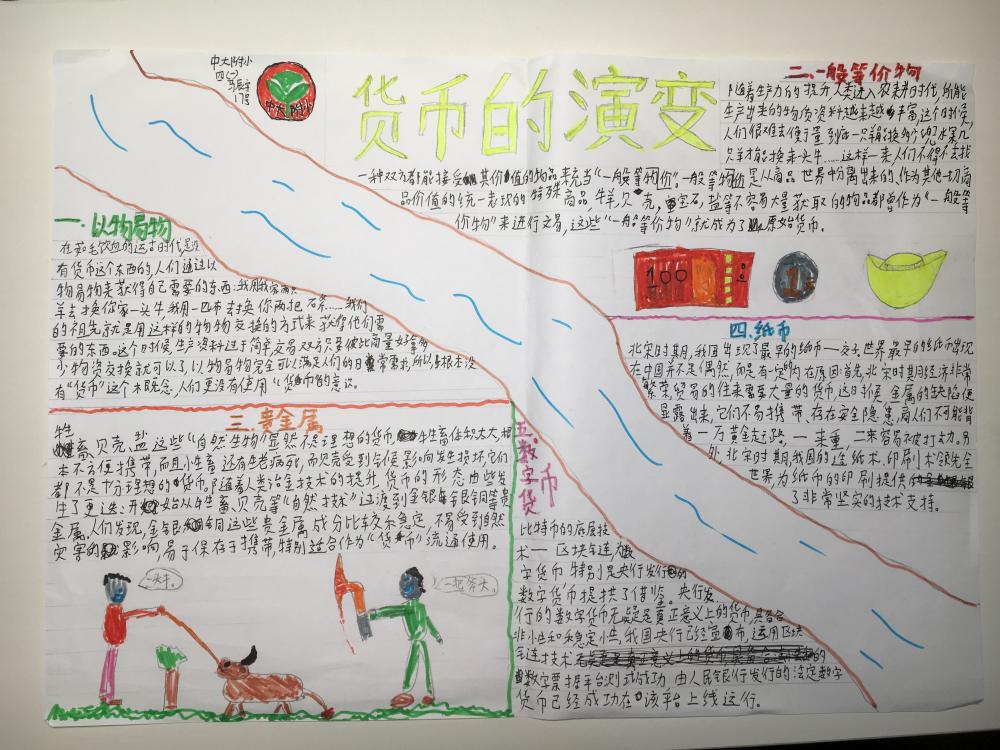 中大附小
四(一)
17号
中大附小
货币的演变
一.以物易物
在茹毛饮血的远古时代是没
有货币这个东西的人们通过以
物易物来获得自己需要的东西:我用我家两只
羊去换你家一头牛,我用一匹布去换你两把石斧……我们
的祖先就是用这样的物物交换的方式来获得他们需
要的东西。这个时候,生产资料过于简单交易双方只要彼此商量好拿多
少物资交换就可以了,以物易物完全可以满足人们的日常需求,所以当时根本没
有“货币”这个概念,人们更没有使用“货币”的意识。
二.一般等价物
随着生产力的提升人类进入农耕时代所能
生产出来的物质资料越来越丰富这个时候,
人们很难去衡量到底一只羊能换多少苹果几
只羊才能换来头牛……这样一来人们不得不去找
一种双方都能接受其价值的物品来充当“一般等价物”。一般等价物是从商品世界中分离出来的,作为其他一切商
品价值的统一表现的特殊商品,牛羊,贝壳,宝石,盐等不容易大量获取的物品都曾作为“一般等
价物”来进行交易,这些“一般等价物”就成为了原始货币。
100
1
三.贵金属
牲
畜、贝壳、盐这些“自然生物”显然不是理想的货币,牛生畜体积太大,根
本不方便携带,而且小牲畜还有生老病死,而贝壳受到气候影响发生损坏,它们
都不是十分理想的货币,随着人类冶金技术的提升,货币的形态由此发
生了更迭:开始从牛生畜、贝壳等“自然技状”过渡到金银铜等贵
金属。人们发现,金银铜这些贵金属成分比较乐急定,不易受到自然
灾害的影响易于保存于携带,特别适合作为“货币”流通使用。
一头牛。
二把斧头。
四.纸币
北宋时期,我国出现了最早的纸币——交子,世界最早的纸币出现
在中国并不是偶然,而是有一定的内在原因:首先,北宋时其月经济非常
繁荣,贸易的往来需要大量的货币,这日寸候金属的缺陷便
显露出来,它们不易携带、存在安全隐患,商人们不可能背
着一万黄金赶路,一来重二来容易被打劫。另
外,北宋时期,我国的造纸术、印刷术领先全
世界,为纸币的印刷提供
了非常坚实的技术支持。
五.数字货币
比特币的底层技
术——区块链为数
字货币特别是央行发行的
数字货币提供了借鉴。央行发
行的数字货币无疑是真正意义上的货币,具备合
非小色和稳定小生,我国央行已经宣布,运用区块
链技术的
数字票据平台测试成功由人民银行发行的法定数字
货币已经成功在该平台上线运行。